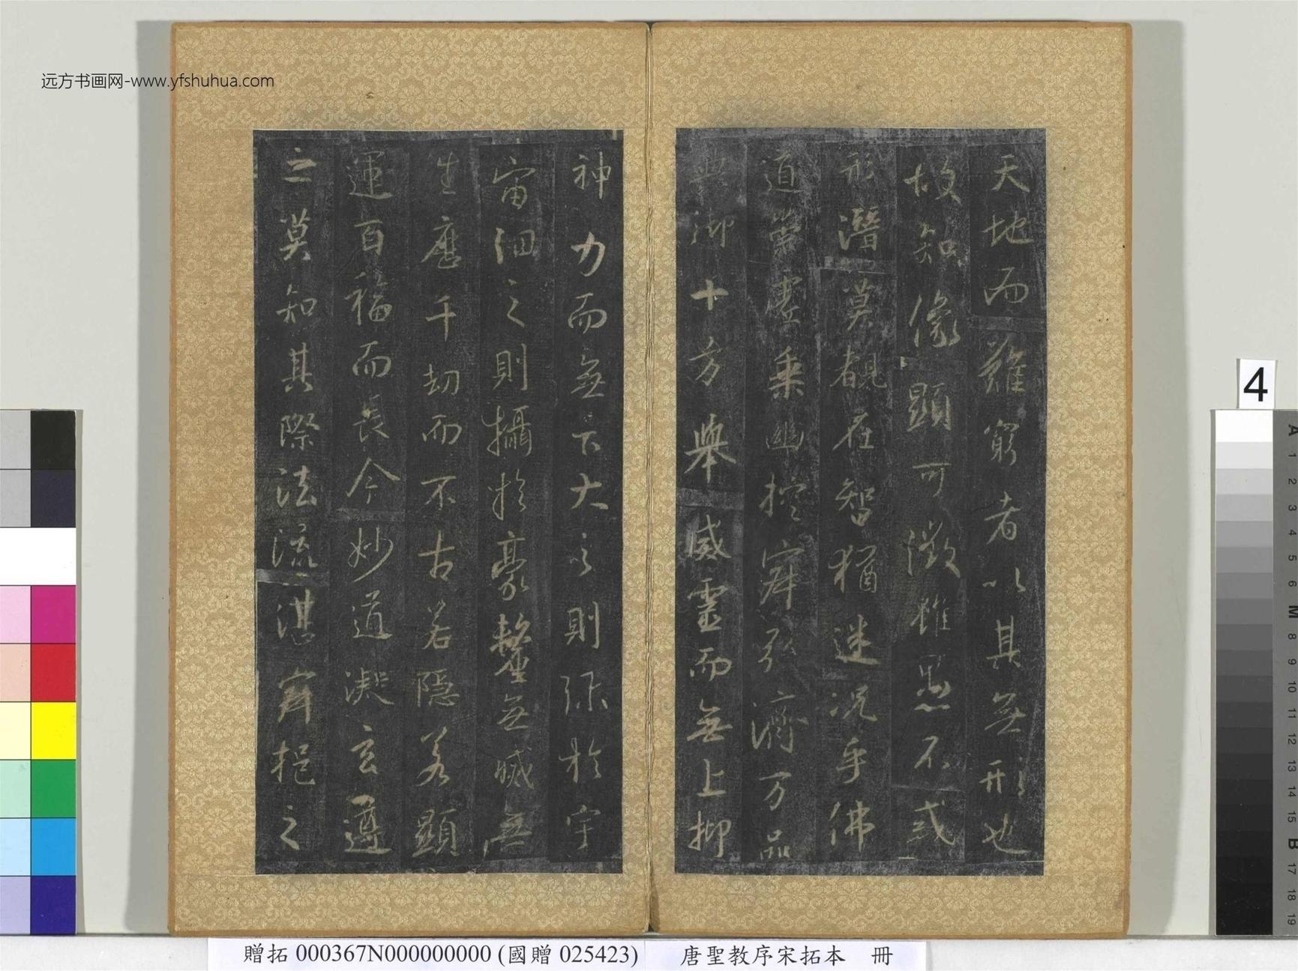 远方书画网-www.yfshuhua.com
天地而難窮者以其無形也
故知像顯可徵雖愚不惑
形潛莫覩在智猶迷況乎佛
道崇虛乘幽控寂弘濟万品
典御十方舉威靈而無上抑
神力而無下大之則彌於宇
宙細之則攝於豪釐無滅無
生歷千劫而不古若隱若顯
運百福而長今妙道凝玄遵
之莫知其際法流湛寂挹之
4
A
1
2
3
4
5
6
M
8
9
10
11
12
13
14
15
B
17
18
19
贈拓 000367N000000000 (國贈 025423)
唐聖教序宋拓本 冊